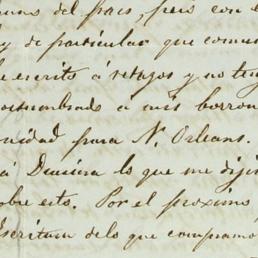 del pais, pero con el
y de particular que comu
escrito á retazos y no ten
ostumbrado á mis borron
nidad para N. Orleans.
á Dunina lo que me diji
obre esto. Por el proximo
Escritura de lo que compramo